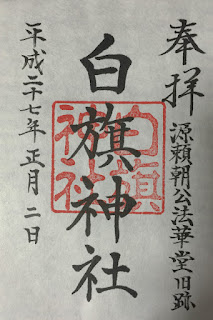 奉拝
源頼朝公法華堂旧跡
白旗神社
白旗神社
平成二十七年正月二日